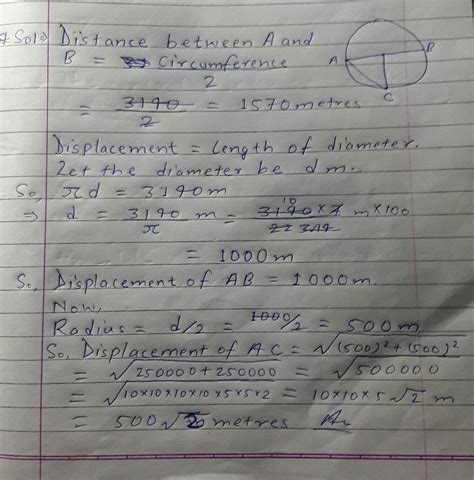 7 Sol⇒ Distance between A and
B = Circumference
2
= 3140/2 = 1570 metres
A B C
Displacement = length of diameter.
Let the diameter be d m.
So, πd = 3140m
⇒ d = 3140/π m = 3140 × 7/22 314 m × 100
10
= 1000m
So, Displacement of AB = 1000m.
Now,
Radius = d/2 = 1000/2 = 500m
So, Displacement of AC = √(500)² + (500)²
= √250000 + 250000 = √500000
= √10×10×10×10×5×5×2 = 10×10×5√2 m
= 500√2 metres Ans